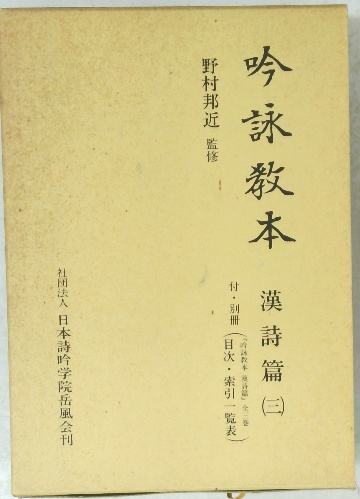 吟詠教本 漢詩篇 (三)
付・別冊(『吟詠教本 漢詩篇』全三巻 目次・索引一覧表)
野村邦近 監修
社団法人 日本詩吟学院岳風会刊